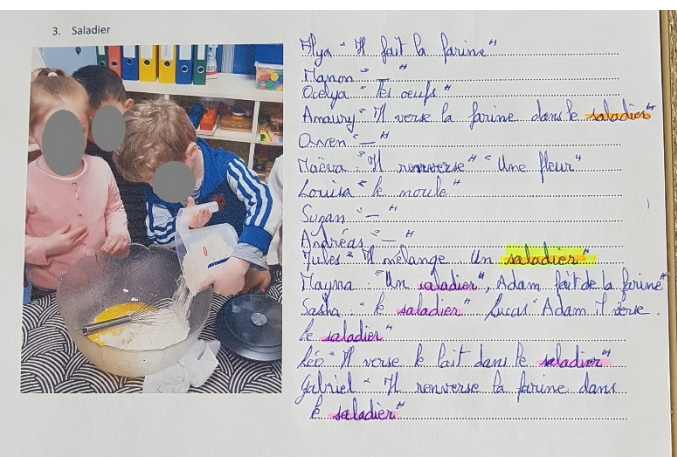 3. Saladier
Ilya "Il fait la farine"
Manon " – "
Ocelya "Les oeufs"
Amaury "Il verse la farine dans le saladier"
Owen " – "
Maëva "Il renverse" "Une fleur"
Louisa "le moule"
Suzan " – "
Andréas " – "
Jules "Il mélange. Un saladier"
Mayna "Un saladier", Adam fait de la farine"
Sasha "le saladier" Lucas "Adam il verse
le saladier"
Léo "Il verse le lait dans le saladier"
Gabriel "Il renverse la farine dans
le saladier"